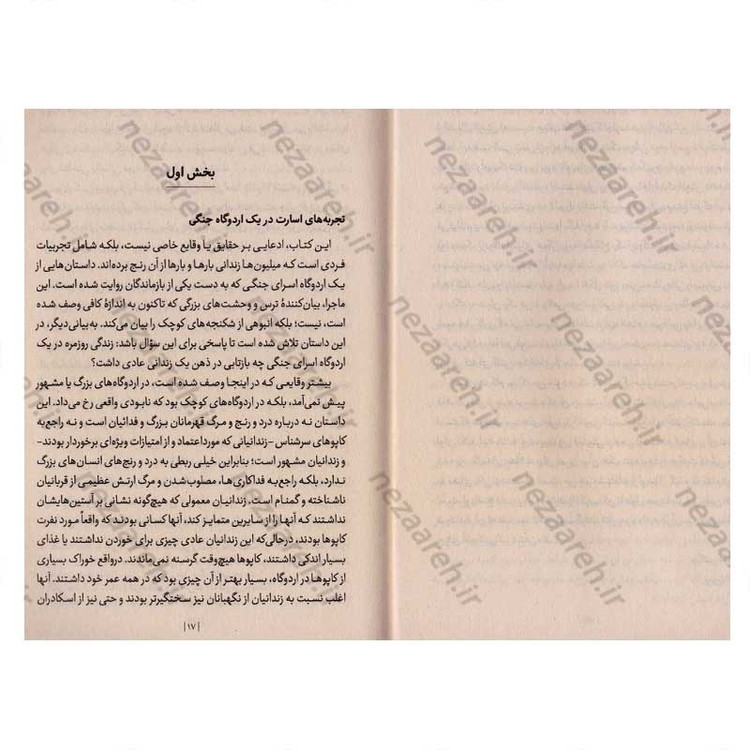 بخش اول
تجربه‌های اسارت در یک اردوگاه جنگی
این کتاب، ادعایی بر حقایق یا وقایع خاصی نیست، بلکه شامل تجربیات
فردی است که میلیون‌ها زندانی بارها و بارها از آن رنج برده‌اند. داستان‌هایی از
یک اردوگاه اسرای جنگی که به دست یکی از بازماندگان روایت شده است. این
ماجرا، بیان‌کنندهٔ ترس و وحشت‌های بزرگی که تاکنون به اندازهٔ کافی وصف شده
است، نیست؛ بلکه انبوهی از شکنجه‌های کوچک را بیان می‌کند. به‌بیانی‌دیگر، در
این داستان تلاش شده است تا پاسخی برای این سؤال باشد: زندگی روزمره در یک
اردوگاه اسرای جنگی چه بازتابی در ذهن یک زندانی عادی داشت؟
بیشتر وقایعی که در اینجا وصف شده است، در اردوگاه‌های بزرگ یا مشهور
پیش نمی‌آمد، بلکه در اردوگاه‌های کوچک بود که نابودی واقعی رخ می‌داد. این
داستان نه درباره درد و رنج و مرگ قهرمانان بزرگ و فدائیان است و نه راجع‌به
کاپوهای سرشناس -زندانیانی که مورداعتماد و از امتیازات ویژه‌ای برخوردار بودند-
و زندانیان مشهور است؛ بنابراین خیلی ربطی به درد و رنج‌های انسان‌های بزرگ
ندارد، بلکه راجع‌به فداکاری‌ها، مصلوب‌شدن و مرگ ارتش عظیمی از قربانیان
ناشناخته و گمنام است. زندانیان معمولی که هیچ‌گونه نشانی بر آستین‌هایشان
نداشتند که آنها را از سایرین متمایز کند، آنها کسانی بودند که واقعاً مورد نفرت
کاپوها بودند، درحالی‌که این زندانیان عادی چیزی برای خوردن نداشتند یا غذای
بسیار اندکی داشتند، کاپوها هیچ‌وقت گرسنه نمی‌ماندند. درواقع خوراک بسیاری
از کاپوها در اردوگاه، بسیار بهتر از آن چیزی بود که در همه عمر خود داشتند. آنها
اغلب نسبت به زندانیان از نگهبانان نیز سختگیرتر بودند و حتی نیز از اسکادران
|۱۷|
nezaareh.ir
nezaareh.ir
nezaareh.ir
nezaareh.ir
nezaareh.ir
nezaareh.ir
nezaareh.ir
nezaareh.ir